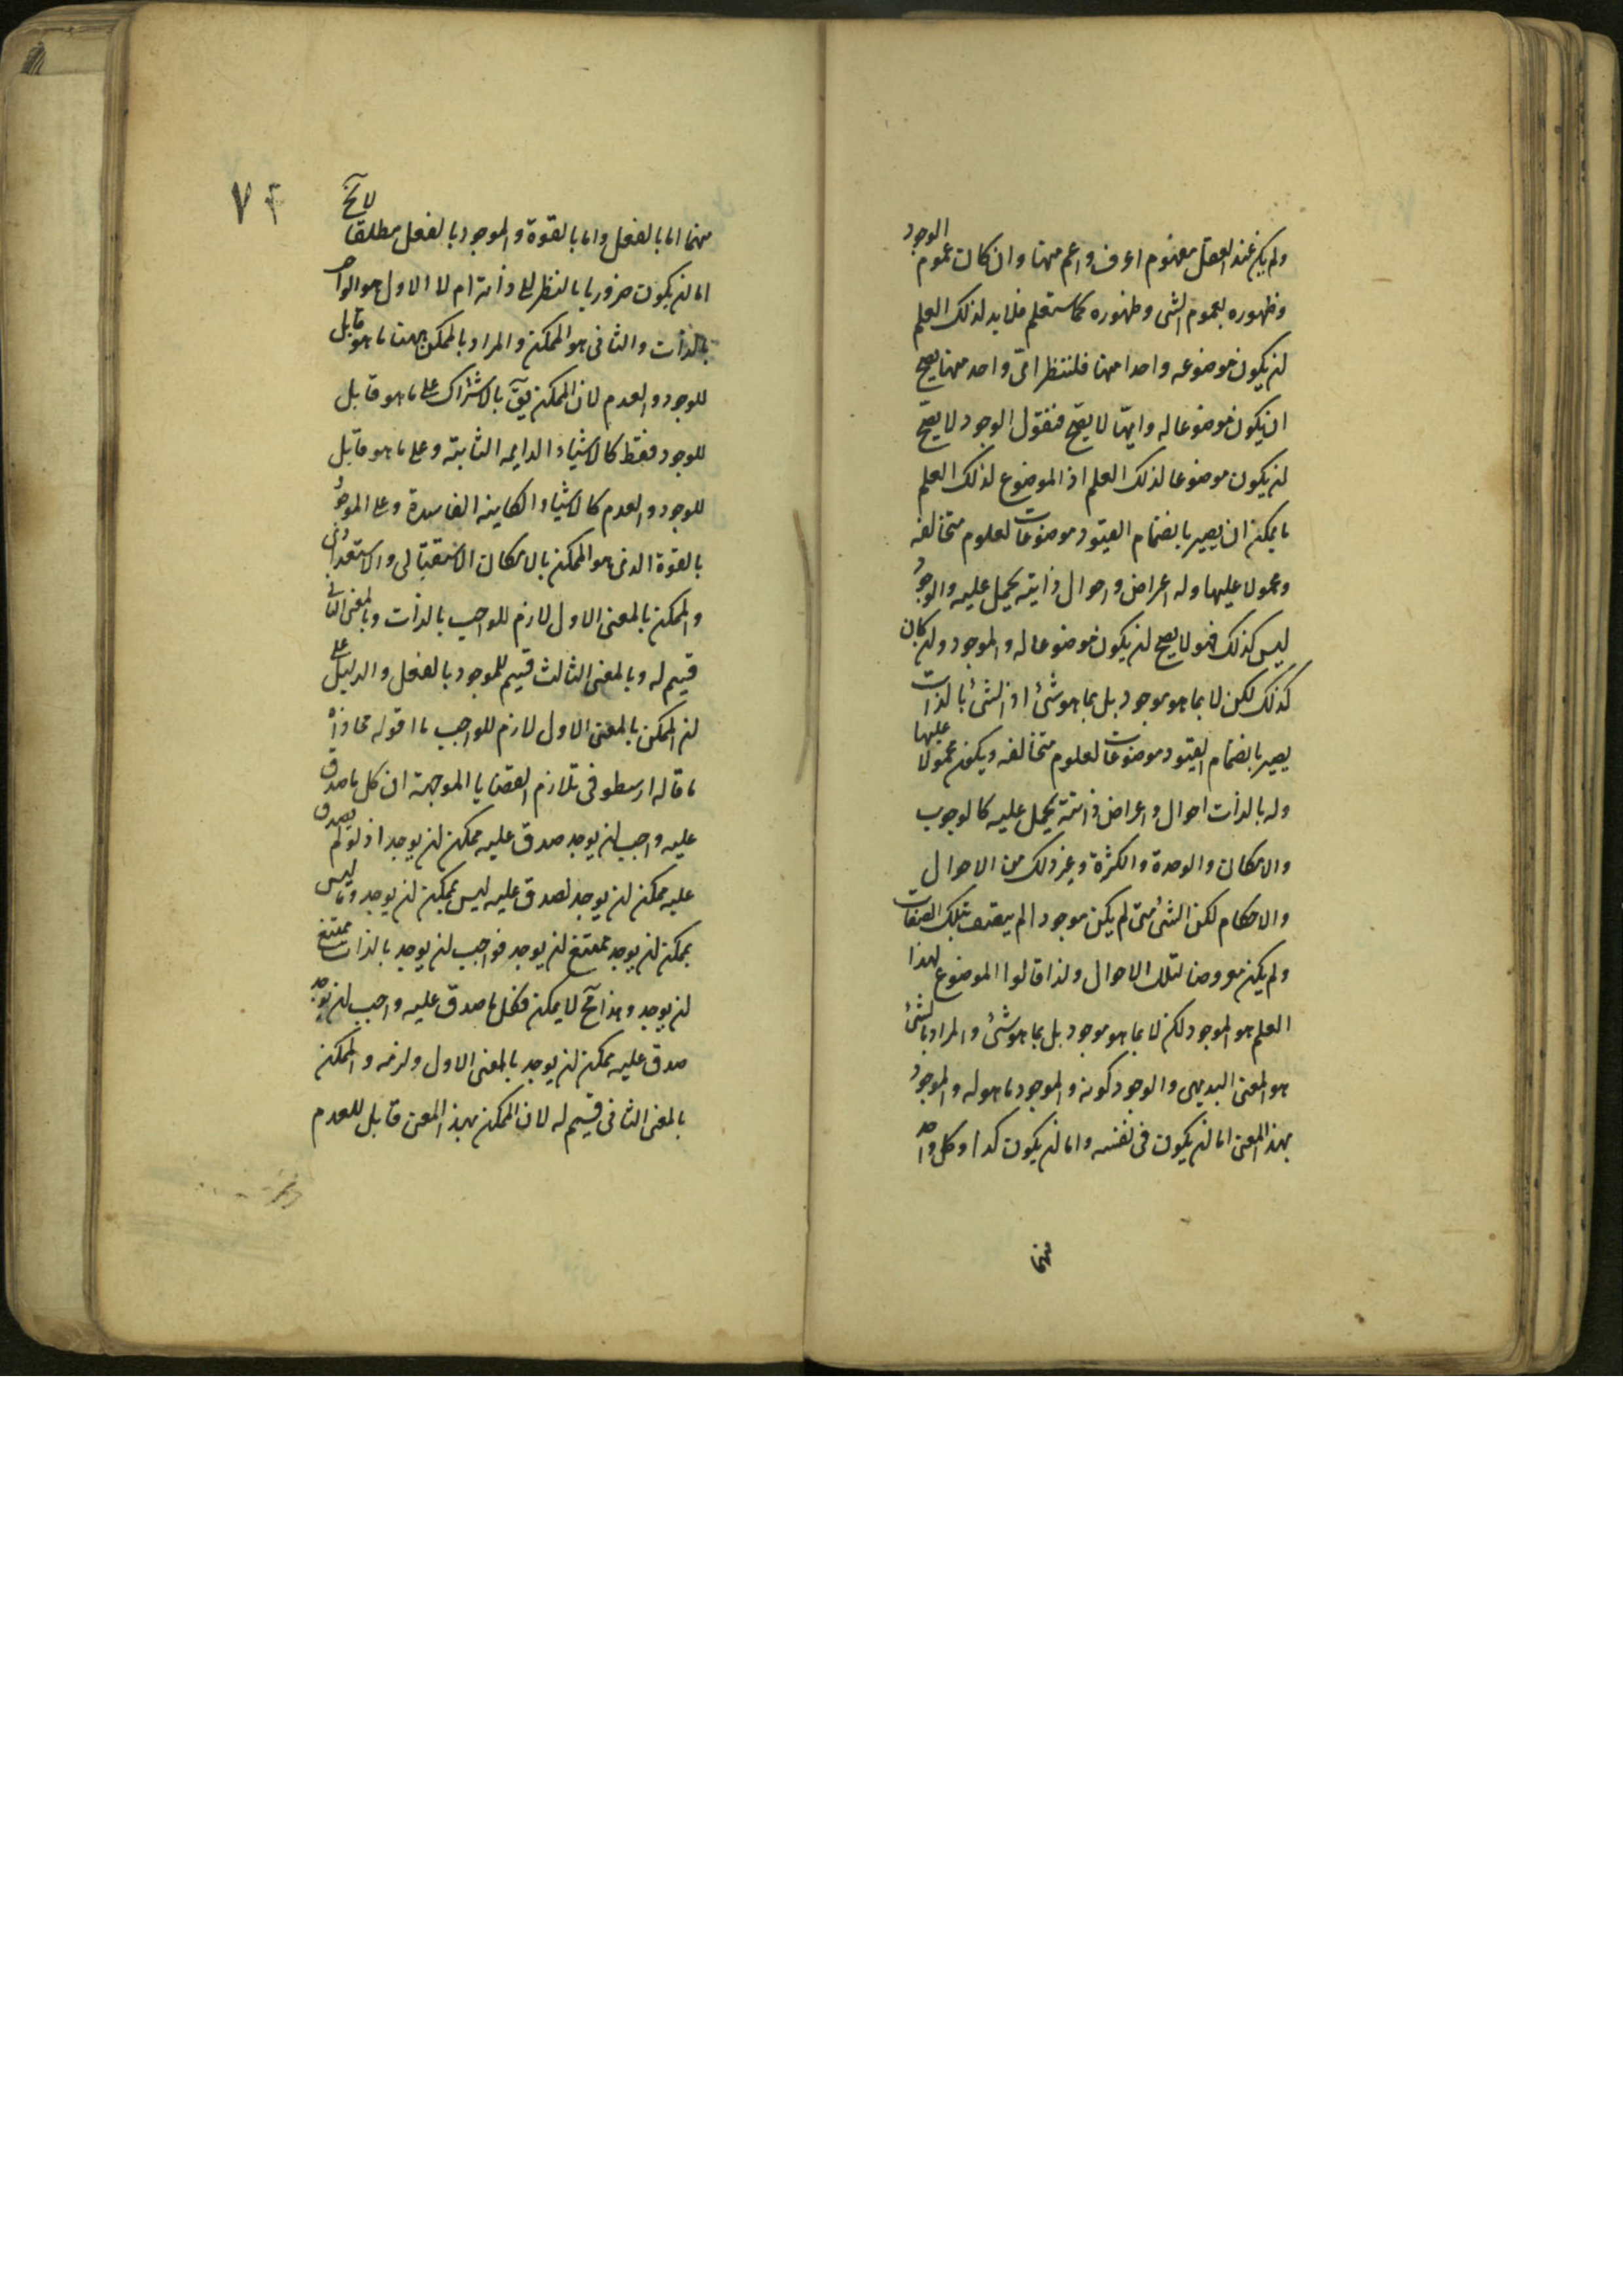 ولم يكن عند العقل مفهوم اعرف واعم منها وان كان عموم الوجود
وظهوره بعموم الشى وظهوره كما ستعلم فلابد لذلك العلم
ان يكون موضوعه واحدا منها فلننظر اى واحد منها يصح
ان يكون موضوعا له وايها لا يصح فنقول الوجود لا يصح
ان يكون موضوعا لذلك العلم اذ الموضوع لذلك العلم
ما يمكن ان يصير بانضمام القيود موضوعات لعلوم متخالفه
ومحمولا عليها وله اعراض واحوال ذاتيه يحمل عليه والوجود
ليس كذلك فهو لا يصح ان يكون موضوعا له والموجود وان كان
كذلك لكن لا بما هو موجود بل بما هو شئ اذ الشئ بالذات
يصير بانضمام القيود موضوعات لعلوم متخالفه ويكون محمولا عليها
وله بالذات احوال واعراض ذاتية يحمل عليه كالوجوب
والامكان والوحدة والكثرة وغير ذلك من الاحوال
والاحكام لكن الشئ متى لم يكن موجودا لم يتصف بتلك الصفات
ولم يكن معروضا لتلك الاحوال ولذا قالوا الموضوع لهذا
العلم هو الموجود لكن لا بما هو موجود بل بما هو شئ والمراد بالشئ
هو المعنى البديهى والوجود كونه والموجود ما هو له والموجود
بهذا المعنى اما ان يكون فى نفسه واما ان يكون كذا وكل واحد
منهما
٧٢
منهما اما بالفعل واما بالقوة والموجود بالفعل مطلقا لا يخ
اما ان يكون ضروريا بالنظر الى ذاته ام لا الاول هو الواجب
بالذات والثانى هو الممكن والمراد بالممكن ههنا ما هو قابل
للوجود والعدم لان الممكن يق بالاشتراك على ما هو قابل
للوجود فقط كالاشياء الدايمه الثابتة وعلى ما هو قابل
للوجود والعدم كالاشياء الكاينه الفاسدة وعلى الموجود
بالقوة الذى هو الممكن بالامكان الاستقبالى والاستعدادى
والممكن بالمعنى الاول لازم للواجب بالذات وبالمعنى الثانى
قسيم له وبالمعنى الثالث قسيم للموجود بالفعل والدليل على
ان الممكن بالمعنى الاول لازم للواجب ما اقوله محاذاة
ما قاله ارسطو فى تلازم القضايا الموجهة ان كل ما صدق
عليه واجب ان يوجد صدق عليه ممكن ان يوجد اذ لو لم يصدق
عليه ممكن ان يوجد لصدق عليه ليس بممكن ان يوجد وما ليس
بممكن ان يوجد ممتنع ان يوجد فواجب ان يوجد بالذات ممتنع
ان يوجد وهذا مح لا يمكن فكل ما صدق عليه واجب ان يوجد
صدق عليه ممكن ان يوجد بالمعنى الاول ولزمه والممكن
بالمعنى الثانى قسيم له لان الممكن بهذا المعنى قابل للعدم